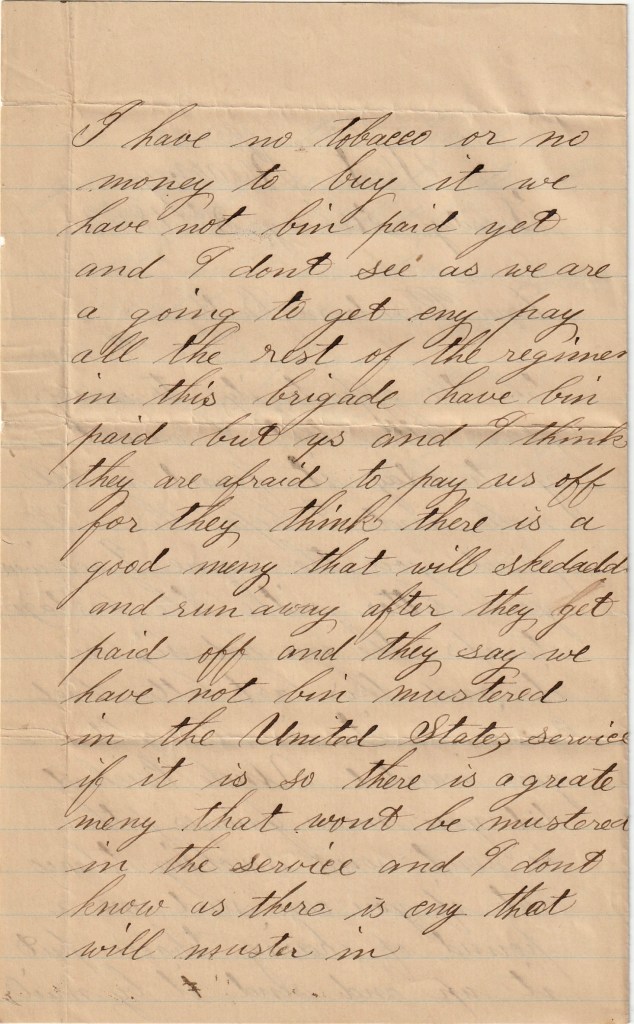 I have no tobacco or no
money to buy it we
have not bin paid yet
and I dont see as we are
a going to get eny pay
all the rest of the regimen
in this brigade have bin
paid but us and I think
they are afraid to pay us off
for they think there is a
good meny that will skedadd
and run away after they get
paid off and they say we
have not bin mustered
in the United States service
if it is so there is a greate
meny that wont be mustered
in the service and I dont
know as there is eny that
will muster in